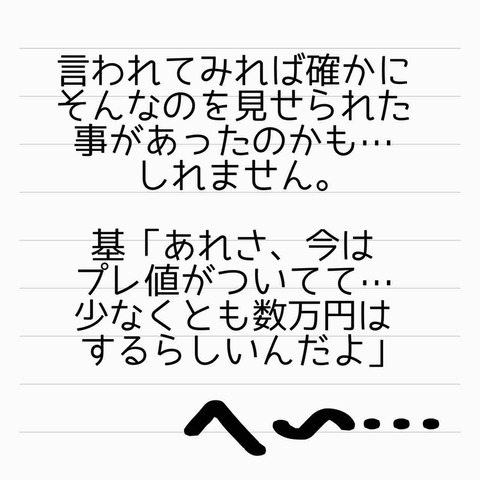 言われてみれば確かに
そんなのを見せられた
事があったのかも…
しれません。
基「あれさ、今は
プレ値がついてて…
少なくとも数万円は
するらしいんだよ」
へ〜…